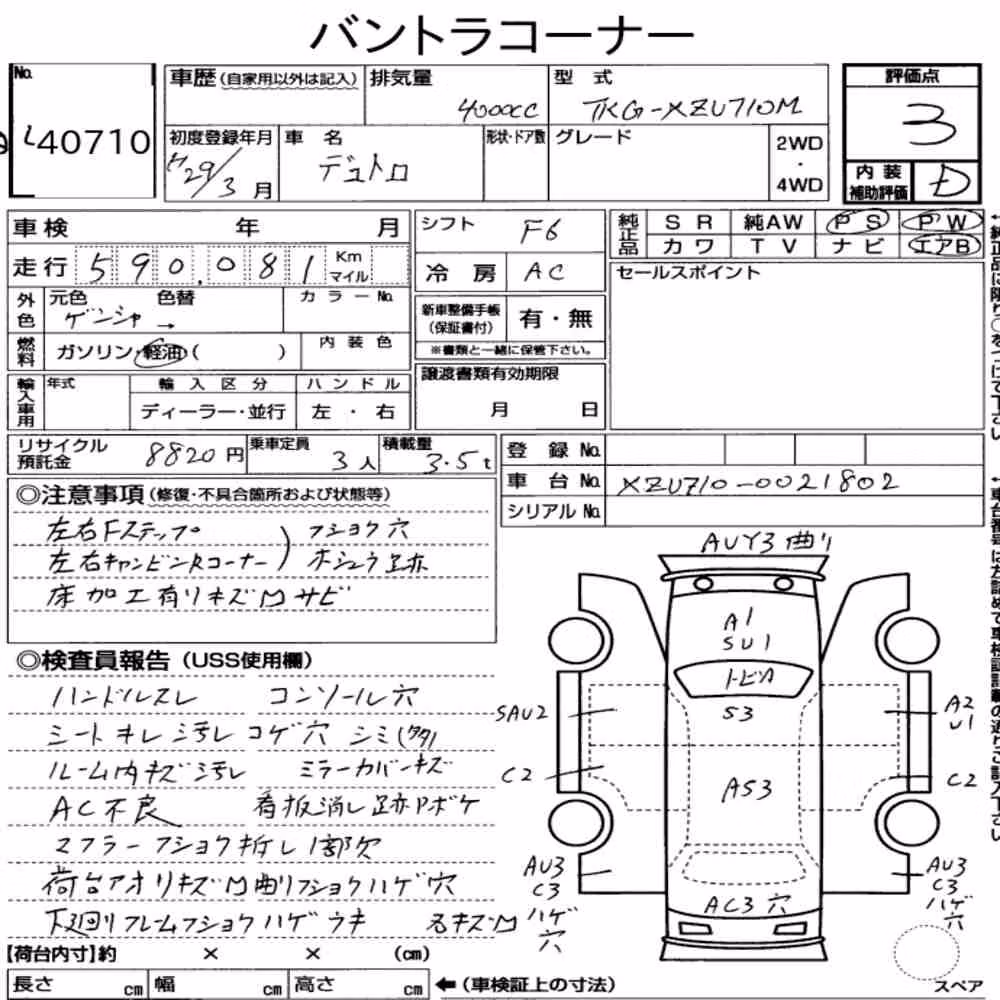 バントラコーナー
No. 40710
車歴 (自家用以外は記入)
排気量 4000cc
型式 TKG-XZU710M
評価点 3
初度登録年月 H29/3月
車名 デュトロ
形状・ドア数
グレード
2WD・4WD
内装補助評価 D
車検 年 月
シフト F6
純正品 SR 純AW PS PW
カワ TV ナビ エアB
走行 590,081 Km マイル
冷房 AC
セールスポイント
外色 元色 色替 カラーNo.
ゲンシャ →
新車整備手帳(保証書付) 有・無
※書類と一緒に保管下さい。
燃料 ガソリン・軽油( ) 内装色
譲渡書類有効期限
月 日
輸入車用 年式 輸入区分 ハンドル
ディーラー・並行 左・右
リサイクル預託金 8820円
乗車定員 3人
積載量 3.5t
登録No.
車台No. XZU710-0021802
シリアルNo.
◎注意事項(修復・不具合箇所および状態等)
左右Fステップ ) フショク穴
左右キャビンRコーナー ) ホシュウ跡
床加工有リキズMサビ
◎検査員報告(USS使用欄)
ハンドルスレ コンソール穴
シートキレ汚レコゲ穴 シミ(タタ)
ルーム内キズ汚レ ミラーカバーキズ
AC不良 看板消し跡Pボケ
マフラーフショク折レ1部欠
荷台アオリキズM曲リフショクハゲ穴
下廻リフレームフショクハゲウキ 名キズM
【荷台内寸】約 × × (cm)
長さ cm 幅 cm 高さ cm
←(車検証上の寸法)
AUY3曲リ
A1
SU1
トビA
S3
SAU2
A2
U1
C2
C2
AS3
AU3
C3
ハゲ
穴
AU3
C3
ハゲ
穴
AC3穴
スペア